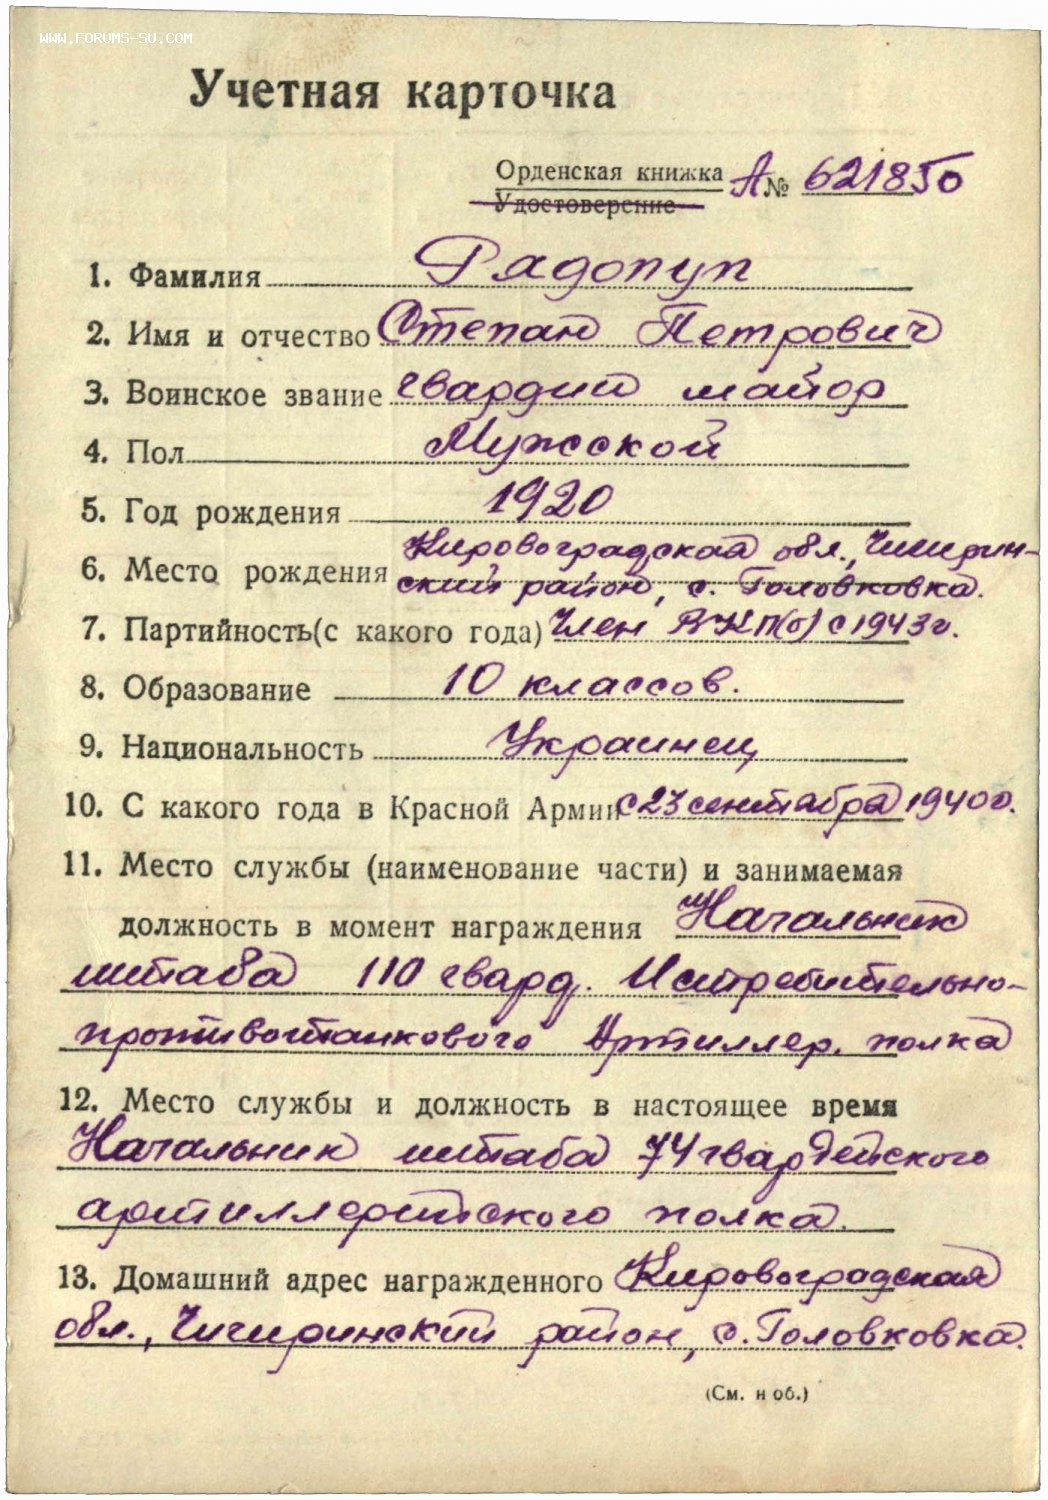 WWW.FORUMS-SU.COM
Учетная карточка
Орденская книжка А № 621850
Удостоверение
1. Фамилия Радопуп
2. Имя и отчество Степан Петрович
3. Воинское звание гвардии майор
4. Пол Мужской
5. Год рождения 1920
Кировоградская обл., Чигирин-
6. Место рождения ский район, с. Головковка.
7. Партийность (с какого года) Член ВКП(б) с 1943 г.
8. Образование 10 классов.
9. Национальность Украинец
10. С какого года в Красной Армии с 23 сентября 1940 г.
11. Место службы (наименование части) и занимаемая
должность в момент награждения Начальник
штаба 110 гвард. Истребительно-
противотанкового Артиллер. полка
12. Место службы и должность в настоящее время
Начальник штаба 74 гвардейского
артиллерийского полка.
13. Домашний адрес награжденного Кировоградская
обл., Чигиринский район, с. Головковка.
(См. н об.)